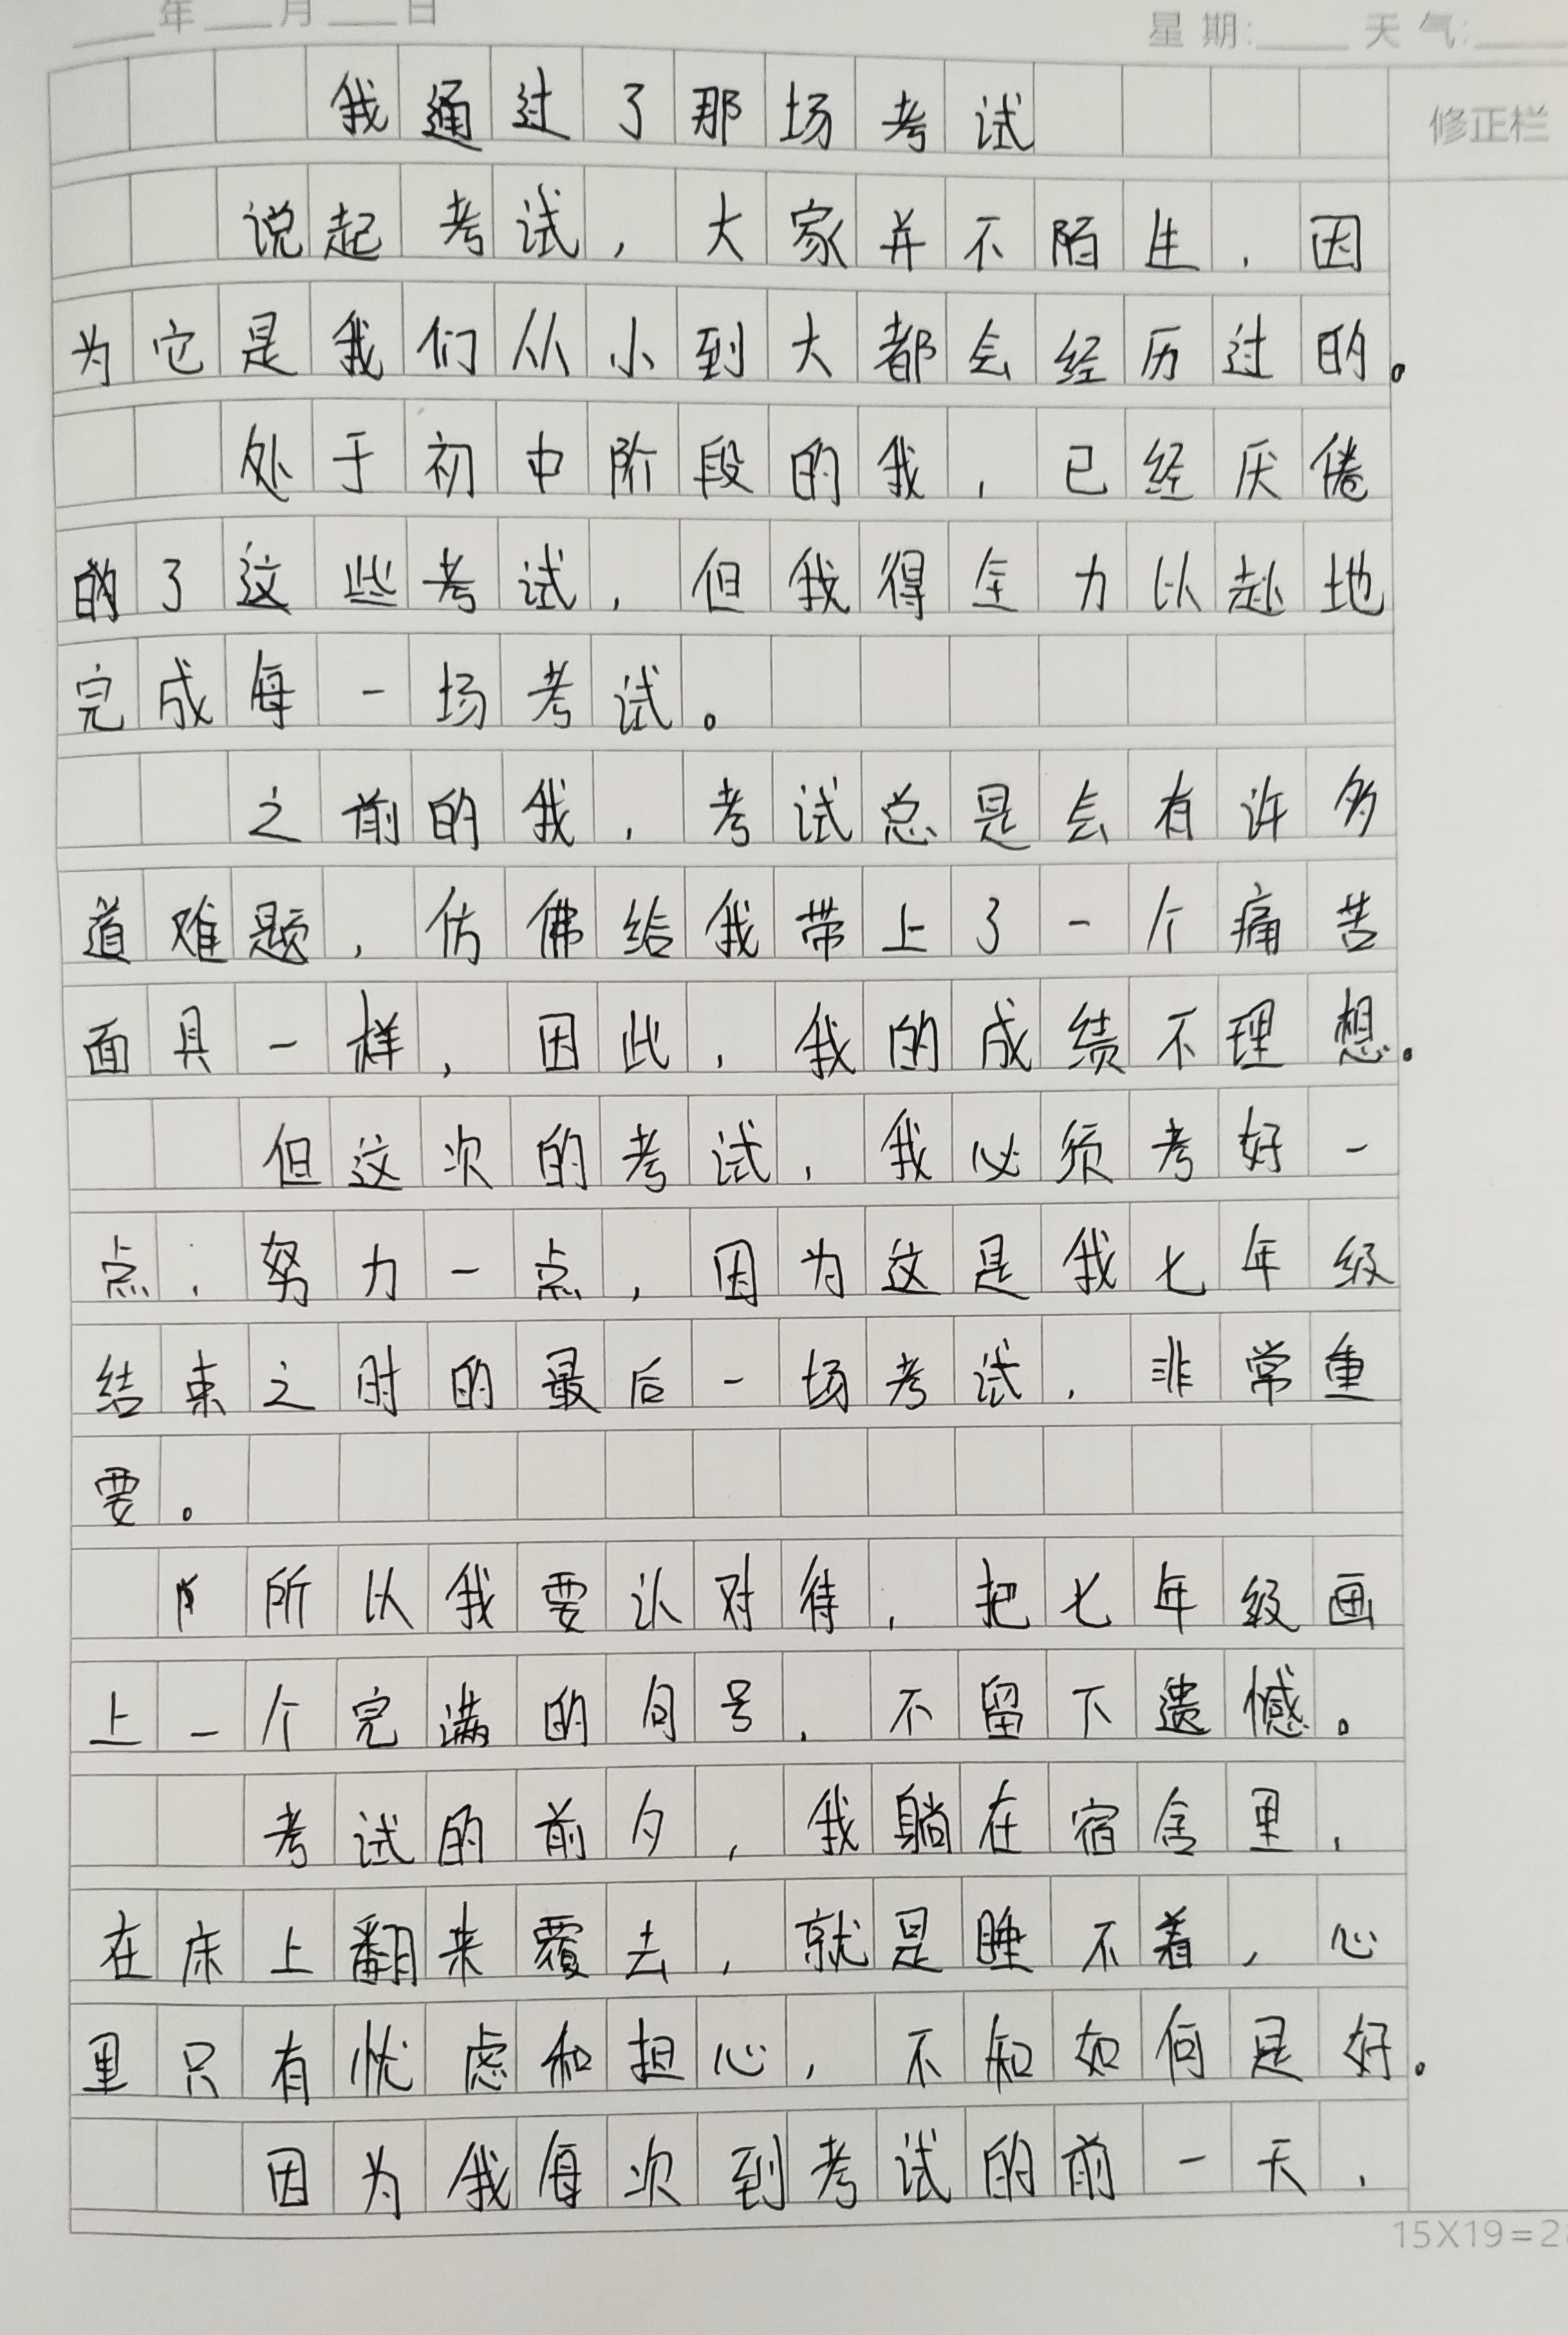 ___年___月___日
星期:____天气:____
修正栏
我通过了那场考试
说起考试，大家并不陌生，因
为它是我们从小到大都会经历过的。
处于初中阶段的我，已经厌倦
的了这些考试，但我得全力以赴地
完成每一场考试。
之前的我，考试总是会有许多
道难题，仿佛给我带上了一个痛苦
面具一样，因此，我的成绩不理想。
但这次的考试，我必须考好一
点，努力一点，因为这是我七年级
结束之时的最后一场考试，非常重
要。
所以我要认对待，把七年级画
上一个完满的句号，不留下遗憾。
考试的前夕，我躺在宿舍里，
在床上翻来覆去，就是睡不着，心
里只有忧虑和担心，不知如何是好。
因为我每次到考试的前一天，
15X19=2